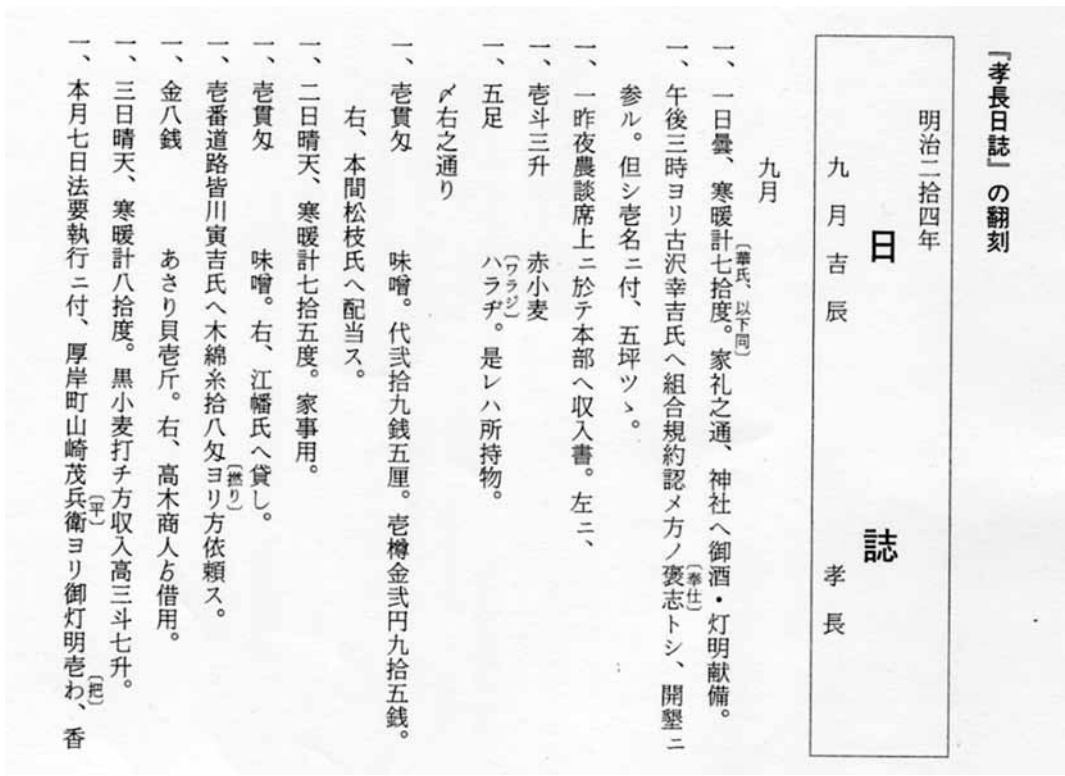 『孝長日誌』の翻刻
明治二拾四年
日誌
九月吉辰　孝長
九月
一、一日曇、寒暖計七拾度。〔華氏、以下同〕家礼之通、神社へ御酒・灯明献備。
一、午後三時ヨリ古沢幸吉氏へ組合規約認メ方ノ褒志〔奉仕〕トシ、開墾ニ
参ル。但シ壱名ニ付、五坪ツヽ。
一、一昨夜農談席上ニ於テ本部へ収入書。左ニ、
一、壱斗三升　赤小麦
一、五足　ハラヂ〔ワラジ〕。是レハ所持物。
〆右之通り
一、壱貫匁　味噌。代弐拾九銭五厘。壱樽金弐円九拾五銭。
右、本間松枝氏へ配当ス。
一、二日晴天、寒暖計七拾五度。家事用。
一、壱貫匁　味噌。右、江幡氏へ貸し。
一、壱番道路皆川寅吉氏へ木綿糸拾八匁ヨリ〔撚り〕方依頼ス。
一、金八銭　あさり貝壱斤。右、高木商人ゟ借用。
一、三日晴天、寒暖計八拾度。黒小麦打チ方収入高三斗七升。
一、本月七日法要執行ニ付、厚岸町山崎茂兵衛〔平〕ヨリ御灯明壱わ〔把〕、香